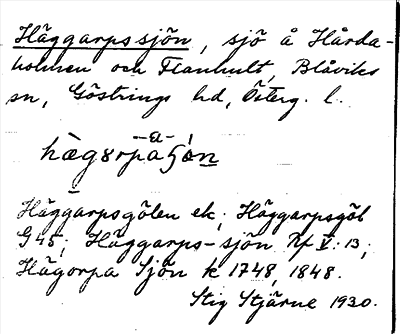 Häggarpssjön, sjö å Hårda-
holmen och Flanhult, Blåviks
sn, Göstrings hd, Österg. l.
Häggarpsgölen ek; Häggarpsgöl
G 45; Häggarps-sjön Rf V: 13;
Hägorpa Sjön k 1748, 1848.
Stig Stjärne 1930.